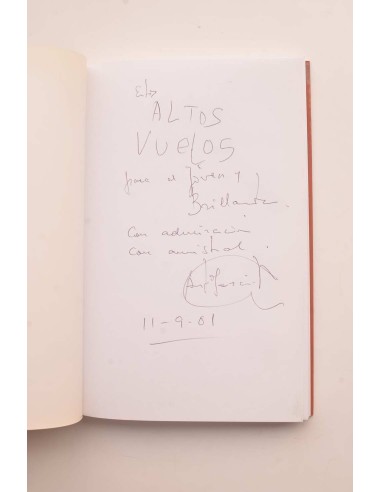 Estos
ALTOS
VUELOS
para el Joven y
Brillante
Con admiración
Con amistad.
11-9-01